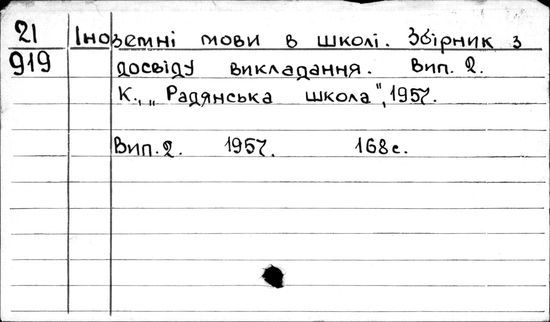 21
919
Іноземні мови в школі. Збірник з
досвіду викладання. Вип. 2.
К., „Радянська школа", 1957.
Вип. 2. 1957. 168 с.